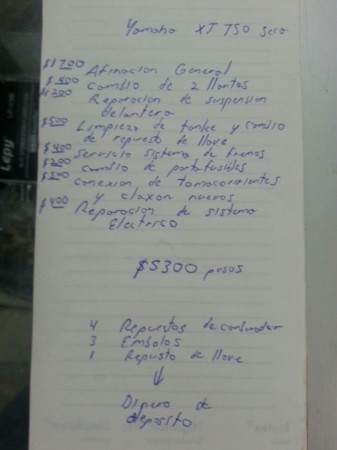 Yamaha XJ 750 Seca
$1700 Afinacion General
$400 cambio de 2 llantas
$1300 Reparacion de suspension
delantera
$500 Limpieza de tanke y cambio
de repuesto de llave
$400 Servicio sistema de frenos
$200 cambio de portafusibles
$200 conexion de tomacorrientes
y claxon nuevos
$400 Reparacion de sistema
Electrico
$5300 pesos
4 Repuestos de carburador
3 Embolos
1 Repusto de llave
↓
de
deposito
Lepy